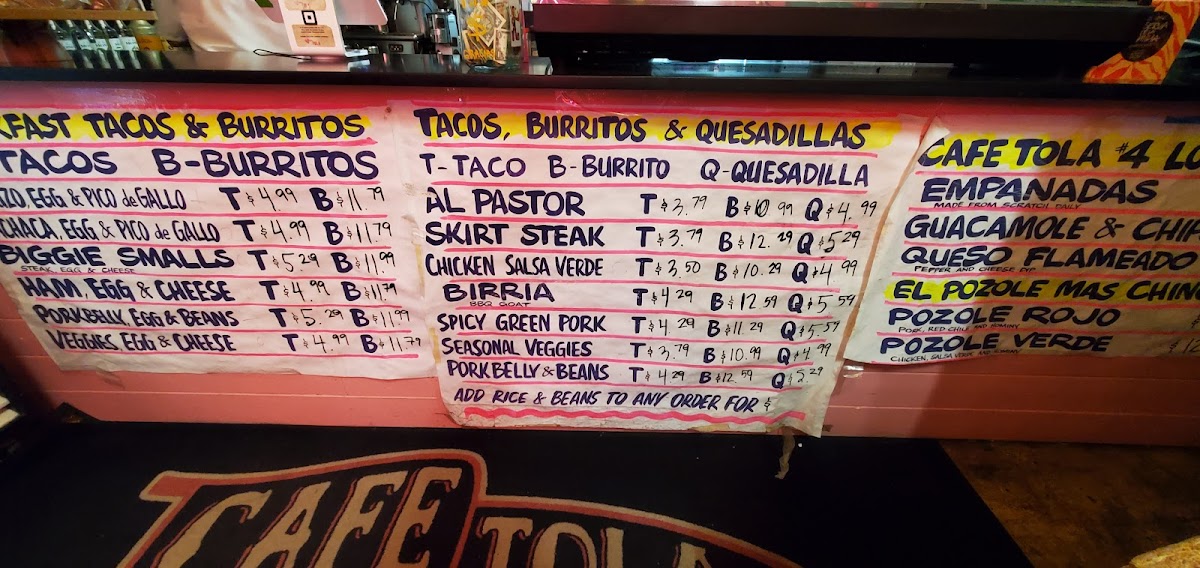 FAST TACOS & BURRITOS
TACOS B-BURRITOS
EGG & PICO de GALLO T $4.99 B $11.79
EGG & PICO de GALLO T $4.99 B $11.79
BIGGIE SMALLS T $5.29 B $11.99
STEAK, EGG & CHEESE
HAM, EGG & CHEESE T $4.99 B $11.79
PORKBELLY, EGG & BEANS T $5.29 B $11.99
VEGGIES, EGG & CHEESE T $4.99 B $11.79
TACOS, BURRITOS & QUESADILLAS
T-TACO B-BURRITO Q-QUESADILLA
AL PASTOR T $3.79 B $10.99 Q $4.99
SKIRT STEAK T $3.79 B $12.29 Q $5.29
CHICKEN SALSA VERDE T $3.50 B $10.29 Q $4.99
BIRRIA T $4.29 B $12.59 Q $5.59
BBQ GOAT
SPICY GREEN PORK T $4.29 B $11.29 Q $5.59
SEASONAL VEGGIES T $3.79 B $10.99 Q $4.99
PORKBELLY & BEANS T $4.29 B $12.59 Q $5.29
ADD RICE & BEANS TO ANY ORDER FOR $
CAFE TOLA #4 LO
EMPANADAS
MADE FROM SCRATCH DAILY
GUACAMOLE & CHIP
QUESO FLAMEADO
PEPPER AND CHEESE DIP
EL POZOLE MAS CHIN
POZOLE ROJO
PORK, RED CHILE AND HOMINY
POZOLE VERDE
CHICKEN, SALSA VERDE AND HOMINY
CAFE TOLA